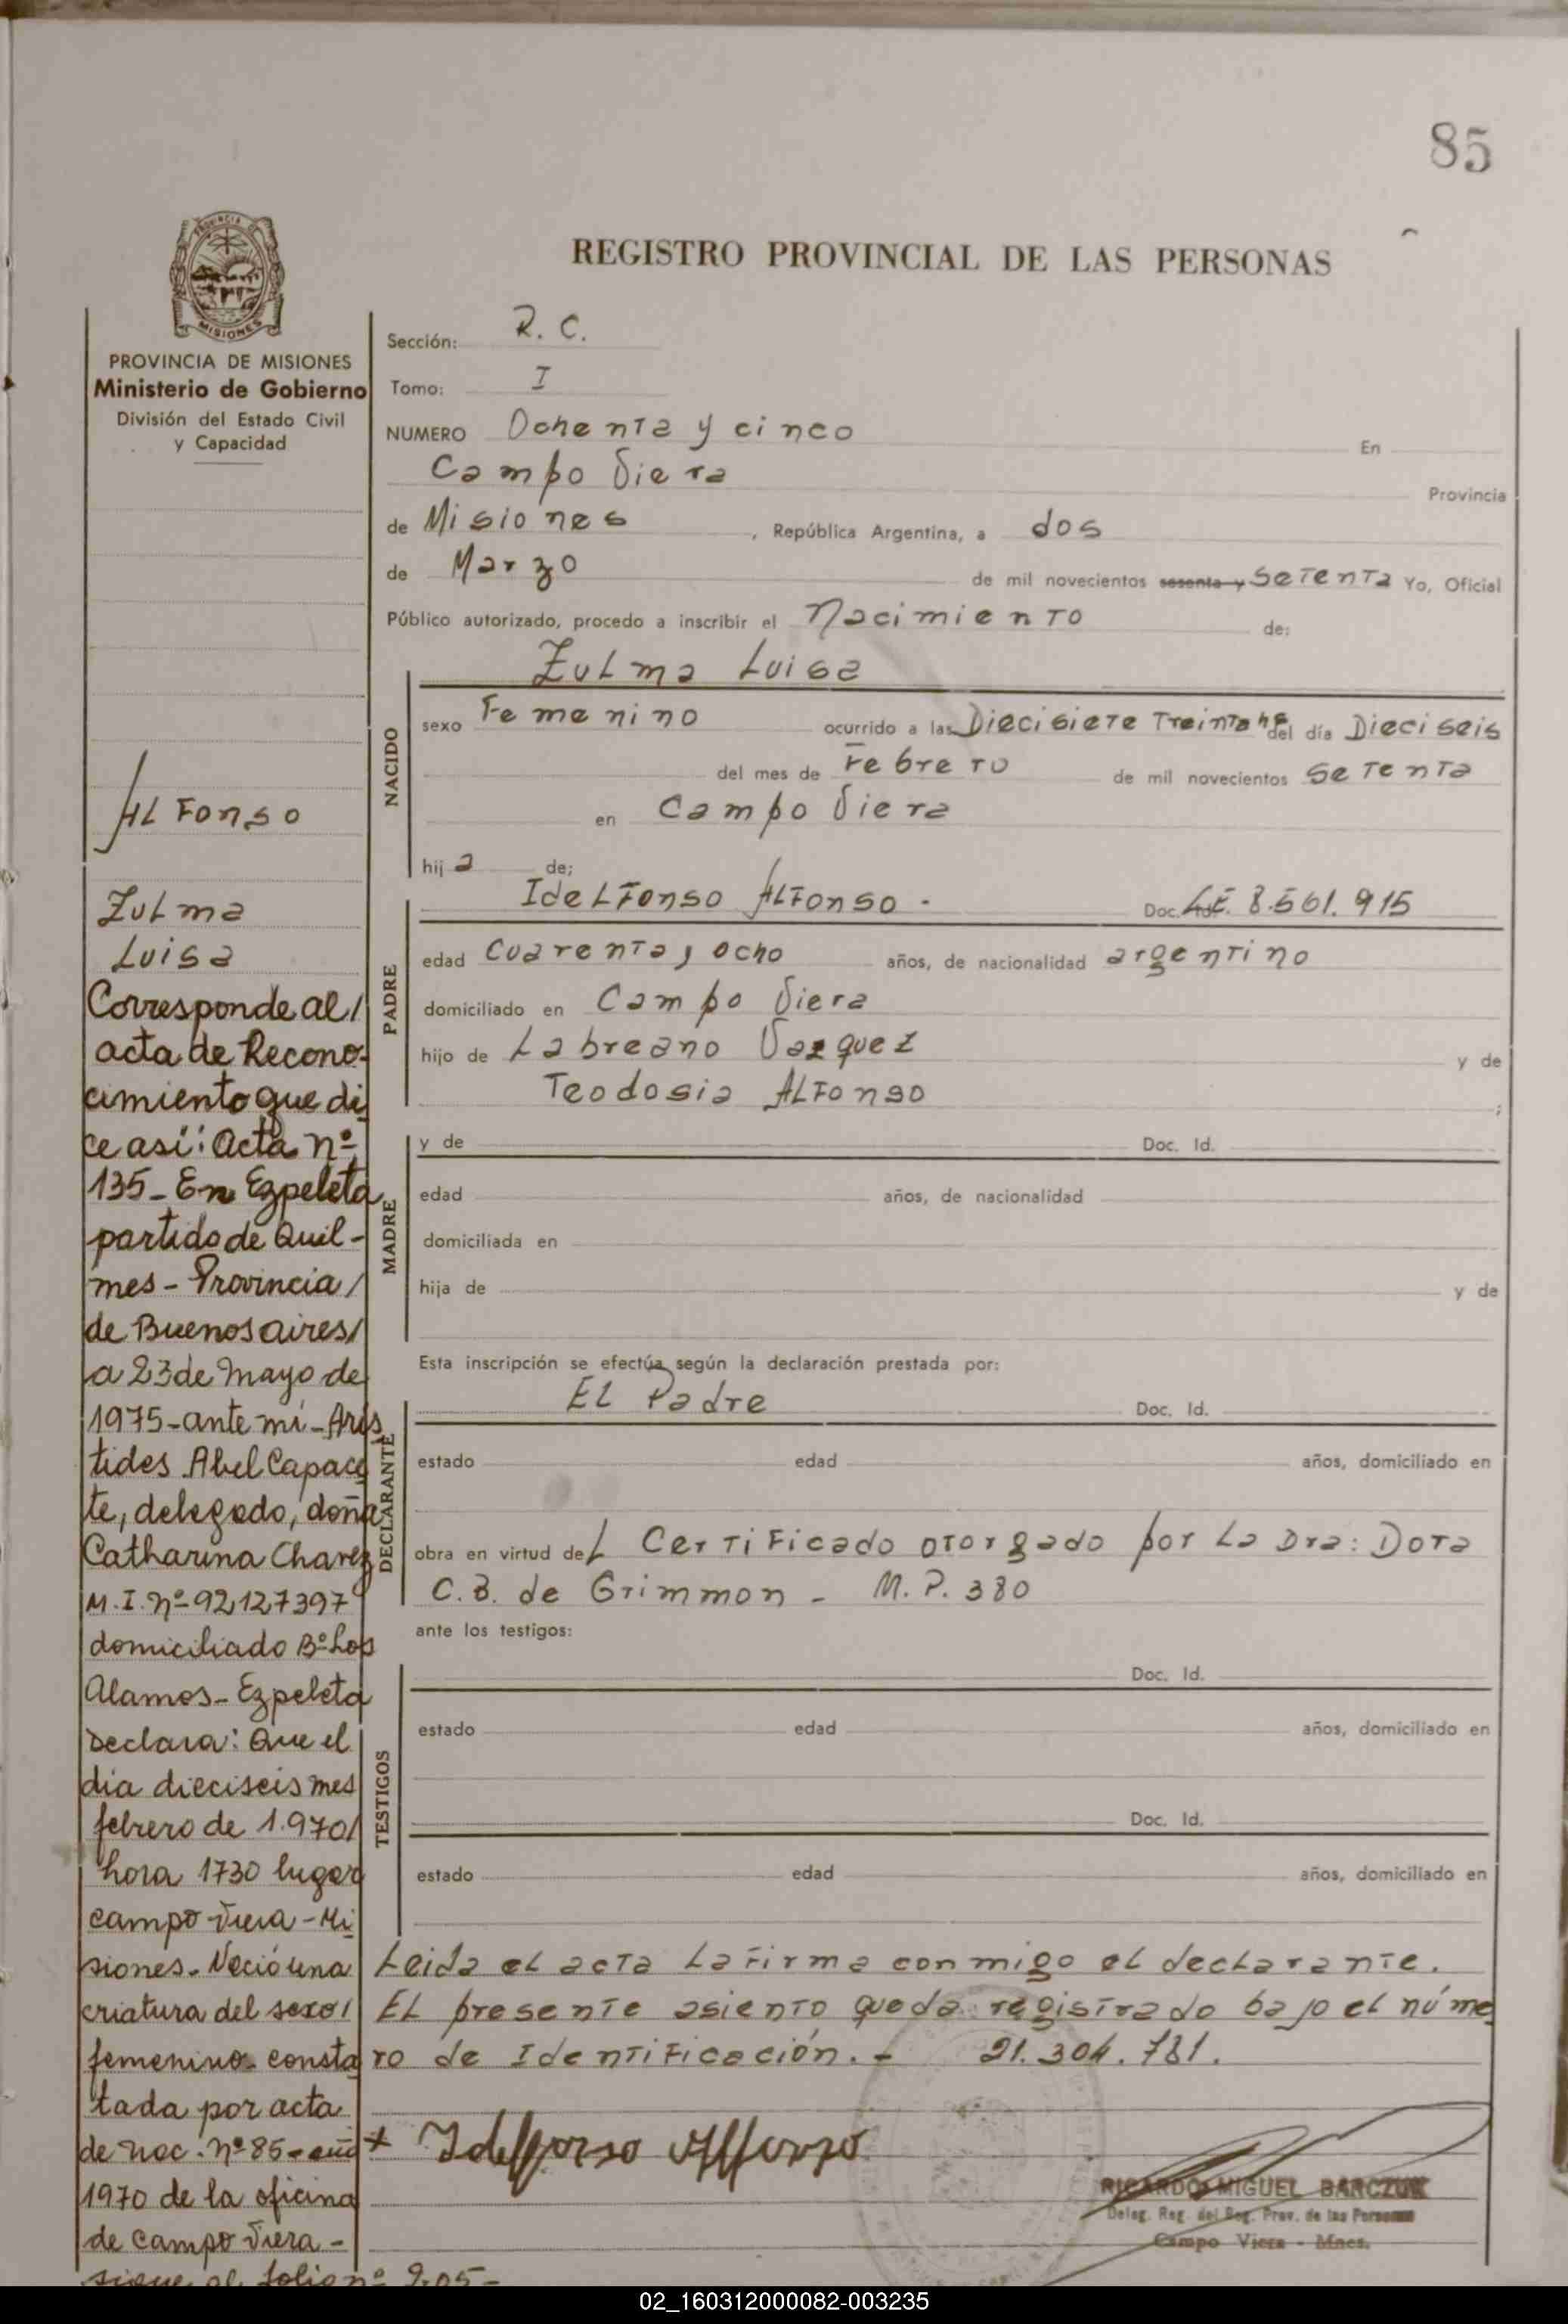 85
REGISTRO PROVINCIAL DE LAS PERSONAS
PROVINCIA
MISIONES
PROVINCIA DE MISIONES
Ministerio de Gobierno
División del Estado Civil
y Capacidad
Sección: R. C.
Tomo: I
NUMERO Ochenta y cinco En
Campo Viera Provincia
de Misiones, República Argentina, a dos
de Marzo de mil novecientos sesenta y Setenta Yo, Oficial
Público autorizado, procedo a inscribir el Nacimiento de:
Zulma Luisa
NACIDO
sexo Femenino ocurrido a las Diecisiete Treinta hs del día Dieciseis
del mes de Febrero de mil novecientos Setenta
en Campo Viera
hija de;
PADRE
Idelfonso Alfonso - Doc. L.E. 8.561.915
edad Cuarenta y ocho años, de nacionalidad argentino
domiciliado en Campo Viera
hijo de Labreano Vazquez y de
Teodosia Alfonso ;
MADRE
y de Doc. Id.
edad años, de nacionalidad
domiciliada en
hija de y de
Esta inscripción se efectúa según la declaración prestada por:
DECLARANTE
El Padre Doc. Id.
estado edad años, domiciliado en
obra en virtud del Certificado otorgado por la Dra: Dora
C.B. de Grimmon - M.P. 380
ante los testigos:
TESTIGOS
Doc. Id.
estado edad años, domiciliado en
Doc. Id.
estado edad años, domiciliado en
Leida el acta la firma conmigo el declarante.
El presente asiento queda registrado bajo el núme
ro de Identificación. - 21.304.781.
+ Idelfonso Alfonso
RICARDO MIGUEL BARCZUK
Deleg. Reg. del Reg. Prov. de las Personas
Campo Viera - Mnes.
Alfonso
Zulma
Luisa
Corresponde al/
acta de Recono-
cimiento que di
ce así: Acta nº
135 - En Ezpeleta
partido de Quil-
mes - Provincia/
de Buenos aires/
a 23 de Mayo de
1975 - ante mi - Arís
tides Abel Capace
te, delegado, doña
Catharina Chavez
M.I. nº 92127397
domiciliado Bº Los
Alamos - Ezpeleta
Declara: Que el
dia dieciseis mes
febrero de 1.970/
hora 1730 lugar
campo Viera - Mi
siones. Nació una
criatura del sexo/
femenino - consta
tada por acta
de nac. nº 85 - año
1970 de la oficina
de campo Viera -
sigue al folio nº 205 -
02_160312000082-003235